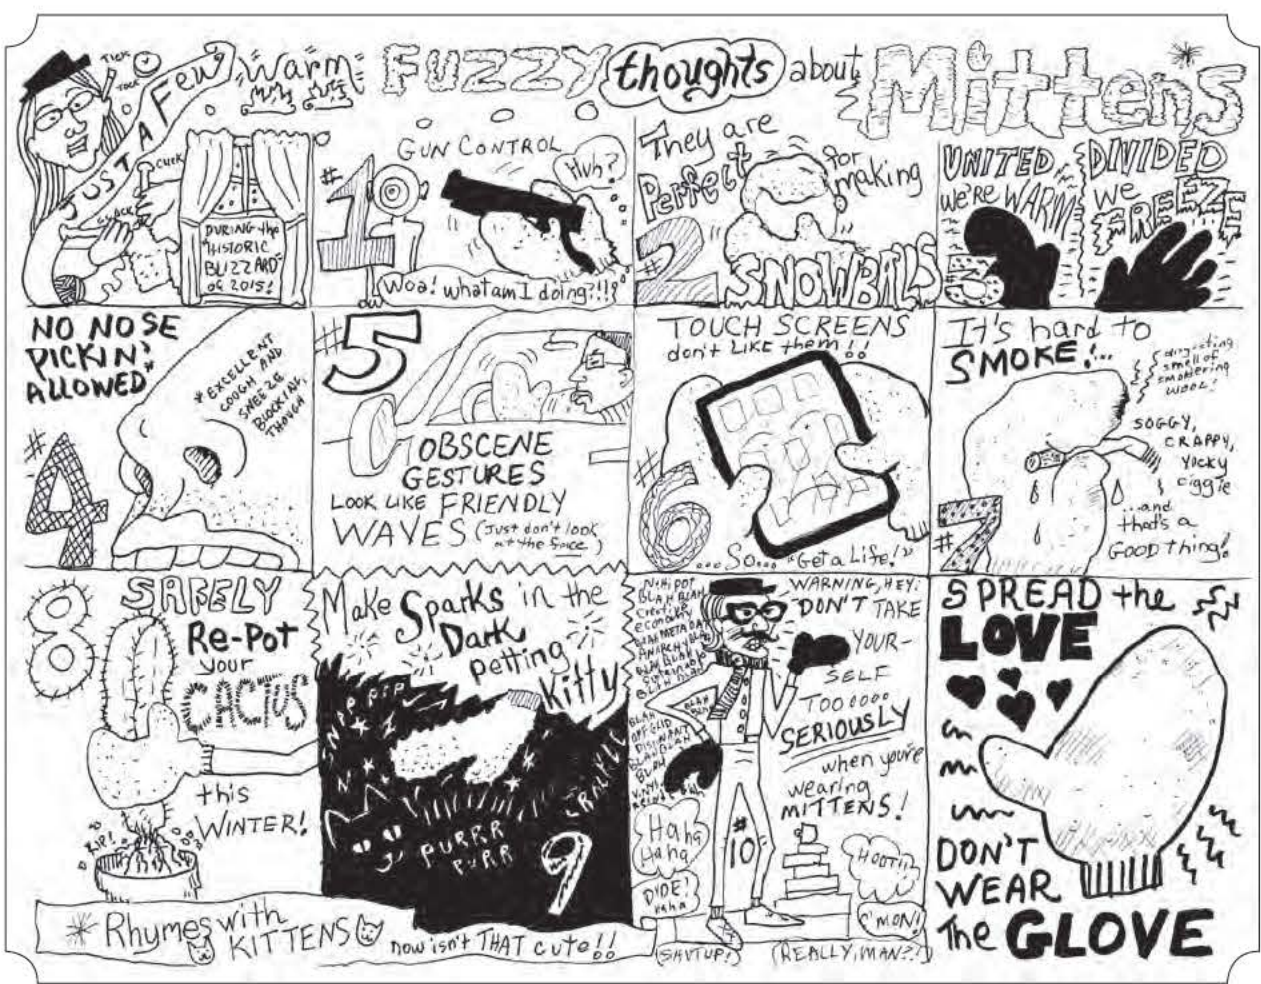 TICK
TOCK
JUST A FEW
warm
FUZZY
thoughts
about
Mittens
CLICK
CLACK
DURING the
"HISTORIC
BLIZZARD"
of 2015!
#1
GUN CONTROL
Huh?
Woa! what am I doing?!!!
They are
PERFECT
for
making
SNOWBALLS
#2
UNITED,
we're WARM
DIVIDED
we
FREEZE
#3
NO NOSE
PICKIN'
ALLOWED*
* EXCELLENT
COUGH AND
SNEEZE
BLOCKING,
THOUGH
#4
#5
OBSCENE
GESTURES
LOOK LIKE FRIENDLY
WAVES (Just don't look
at the face)
TOUCH SCREENS
don't LIKE them!!
#6
...So... "Get a Life!"
It's hard to
SMOKE!...
disgusting
smell of
smoldering
WOOL!
SOGGY,
CRAPPY,
YUCKY
ciggie
...and
that's a
GOOD thing!
#7
8
SAFELY
Re-Pot
your
CACTUS
this
WINTER!
RIP!
Make Sparks in the
Dark
petting
Kitty
CRACKLE
PURRR
PURR
9
Nuhipot
BLAH BLAH
Creative
economy
BLAH METADATA
ANARCHY BLAH
BLAH BLAH
BLAH BLAH
BLAH
BLAH
BLAH
WARNING, HEY!
DON'T TAKE
YOUR-
SELF
TOOOOOO
SERIOUSLY
when you're
wearing
MITTENS!
#10
Haha
Haha
DUDE!
haha
HOOT!!
C'MON!
(SHUTUP!)
(REALLY, MAN?!)
SPREAD the
LOVE
DON'T
WEAR
The GLOVE
* Rhymes with
KITTENS
now isn't THAT cute!!